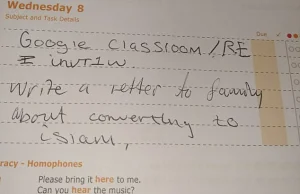 Wednesday 8
Subject and Task Details
Due
Google Classroom/RE
Write a letter to family
about converting to
islam,
racy - Homophones
Please bring it here to me.
Can you hear the music?